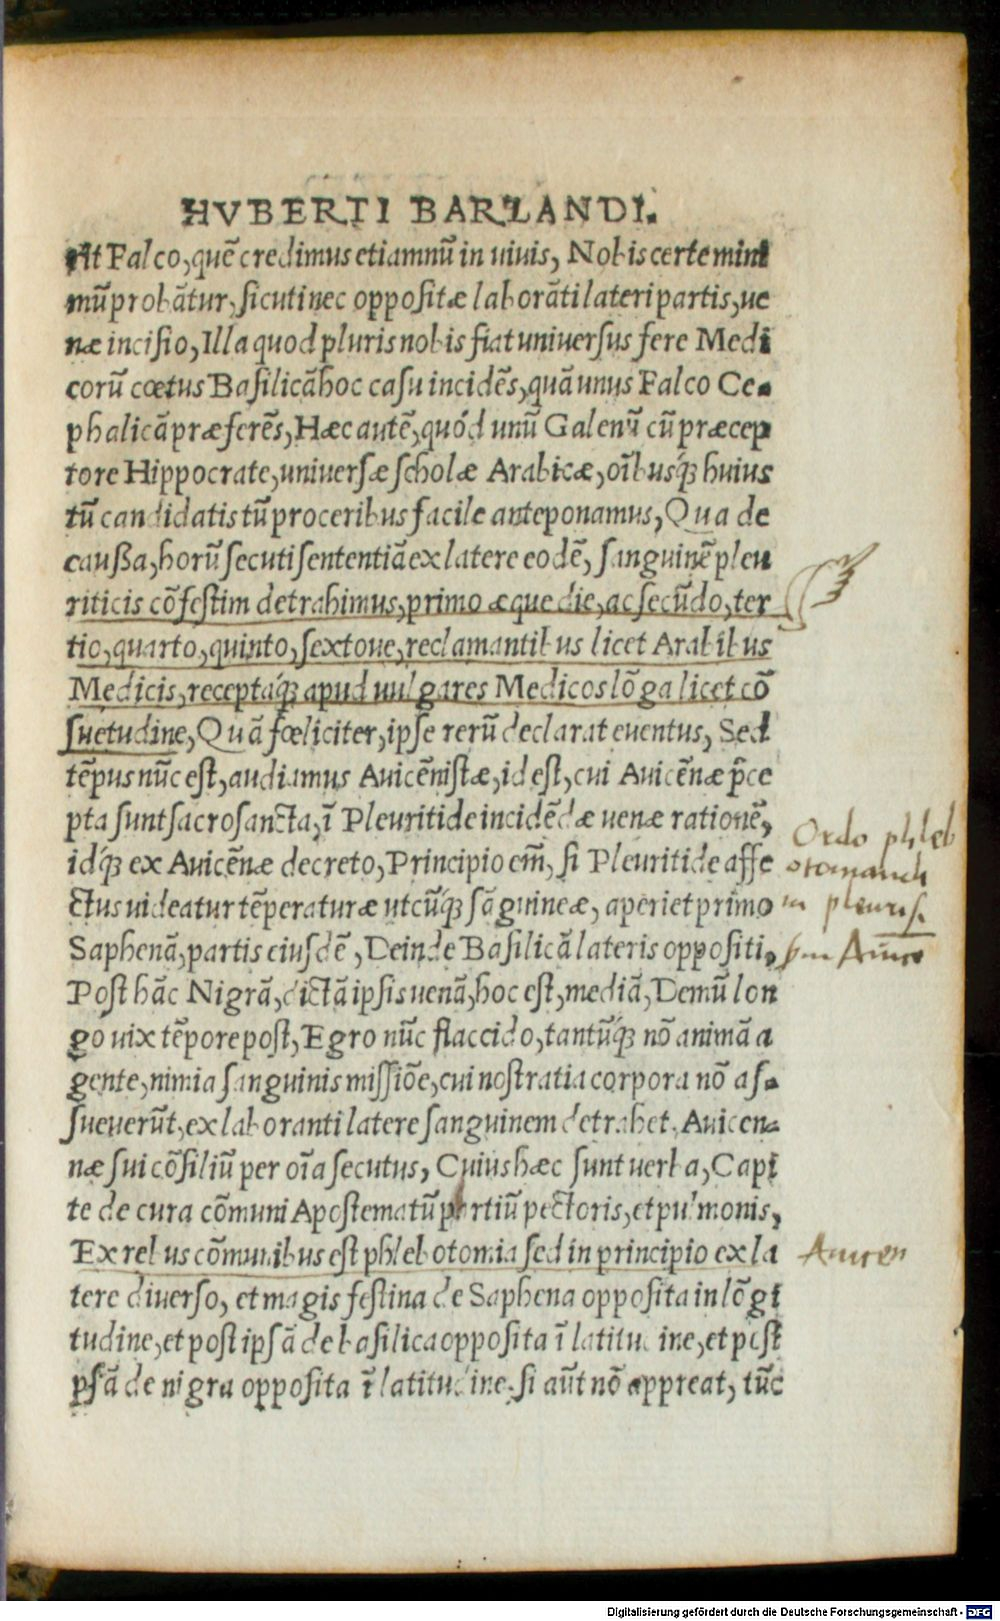 HVBERTI BARLANDI.
sit Falco, quē credimus etiamnū in uiuis, Nobis certe mini
mū probātur, sicuti nec oppositæ laborāti lateri partis, ue
næ incisio, Illa quod pluris nobis fiat uniuersus fere Medi
corū cœtus Basilicā hoc casu incidēs, quā unus Falco Ce-
phalicā præferēs, Hæc autē, quód unū Galenū cū præcep
tore Hippocrate, uniuersæ scholæ Arabicæ, oībusq́; huius
tū candidatis tū proceribus facile anteponamus, Qua de
caußa, horū secuti sententiā ex latere eodē, sanguinē pleu
riticis cōfestim detrahimus, primo æque die, ac secūdo, ter
tio, quarto, quinto, sextoue, reclamantibus licet Arabibus
Medicis, receptaq́; apud uulgares Medicos lōga licet cō
suetudine, Quā fœliciter, ipse rerū declarat euentus, Sed
tēpus nūc est, audiamus Auicēnistæ, id est, cui Auicēnæ p̄ce
pta sunt sacrosancta, ī Pleuritide incidēdæ uenæ rationē,
idq́; ex Auicēnæ decreto, Principio em̄, si Pleuritide affe
ctus uideatur tēperaturæ utcūq́; sāguineæ, aperiet primo
Saphenā, partis eiusdē, Deinde Basilicā lateris oppositi,
Post hāc Nigrā, dictā ipsis uenā, hoc est, mediā, Demū lon
go uix tēpore post, Egro nūc flaccido, tantūq́; nō animā a
gente, nimia sanguinis missiōe, cui nostratia corpora nō as-
sueuerūt, ex laboranti latere sanguinem detrahet, Auicen-
næ sui cōsiliū per oīa secutus, Cuius hæc sunt uerba, Capi
te de cura cōmuni Apostematū partiū pectoris, et pulmonis,
Ex rebus cōmunibus est phlebotomia sed in principio ex la
tere diuerso, et magis festina de Saphena opposita in lōgi
tudine, et post ipsā de basilica opposita ī latitudine, et post
ipsā de nigra opposita ī latitudine, si aūt nō appreat, tūc
Ordo phleb
otomandi
in pleurisi
Auice
Auicen
Digitalisierung gefördert durch die Deutsche Forschungsgemeinschaft - DFG